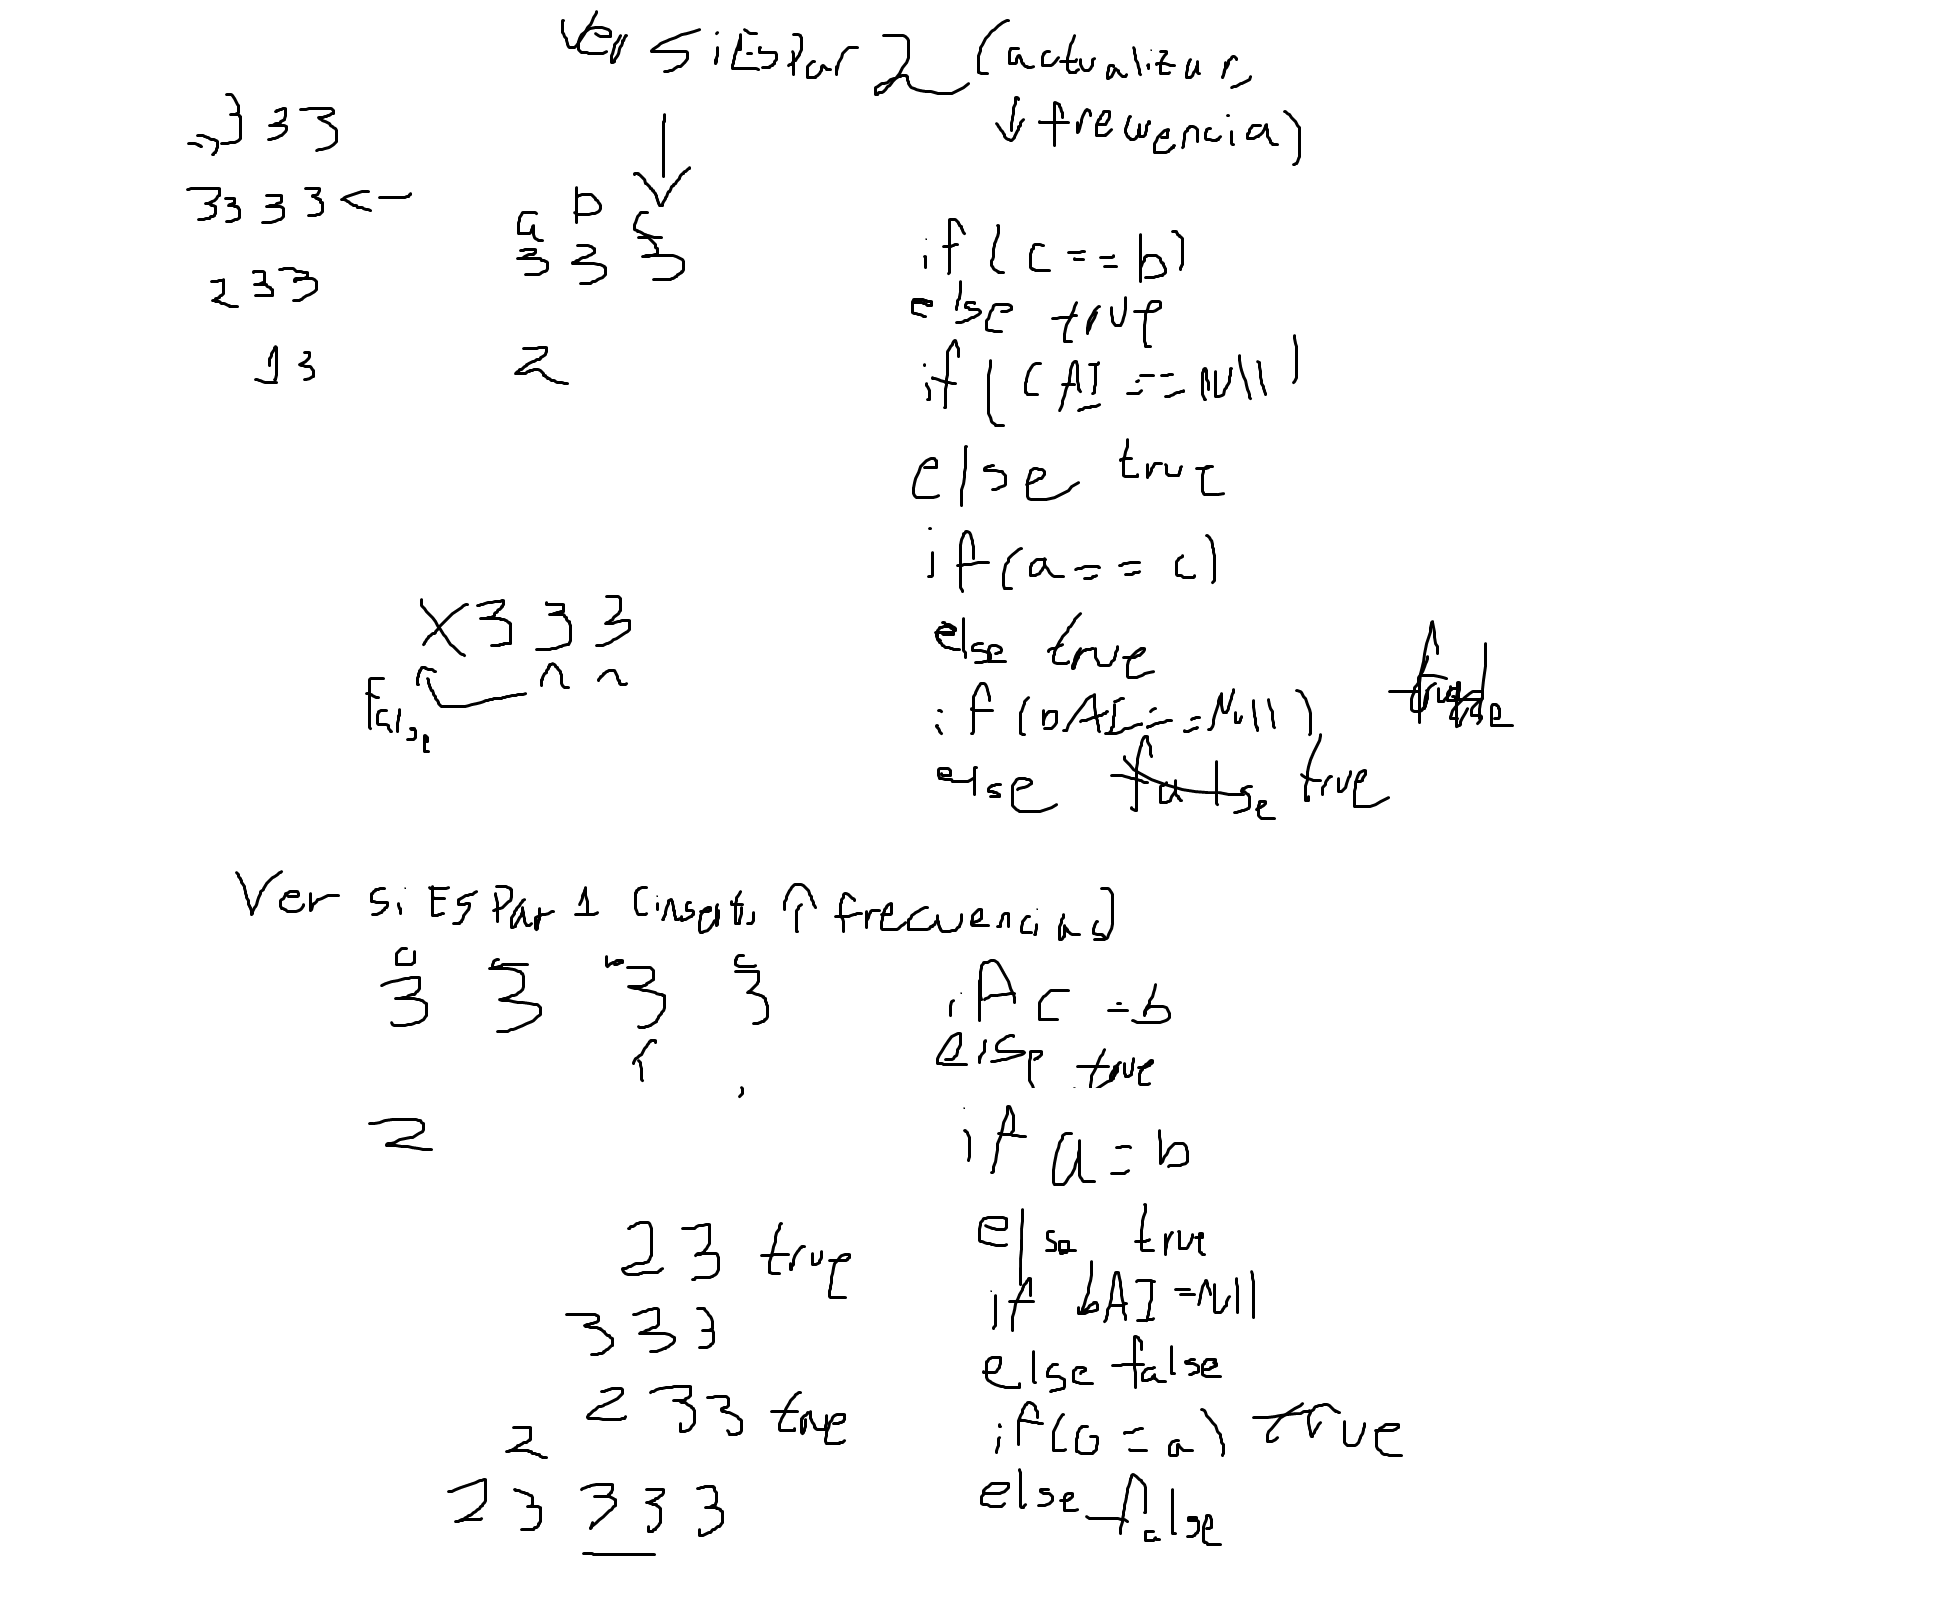 Ver SiEsPar 2 (actualizar,
↓ frecuencia)
,,3 3 3
3333 <-
2 3 3
1 3
a b c
3 3 3
2
if (c == b)
else true
if (CAI == Null)
else true
if (a == c)
else true
if (bAI == Null)
else false true
X 3 3 3
False
Ver si Es Par 1 (insert, ↑ frecuencias)
a c b c
3 3 3 3
2
if c = b
else true
if a = b
else true
if bAI = Null
else false
if (G = a) true
else false
2 3 true
3 3 3
2 3 3 true
2
2 3 3 3 3